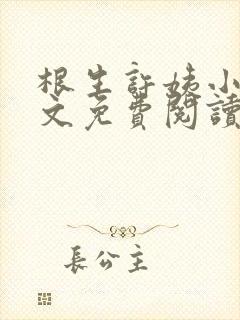 根生許姨小
文免費閱讀
長公主